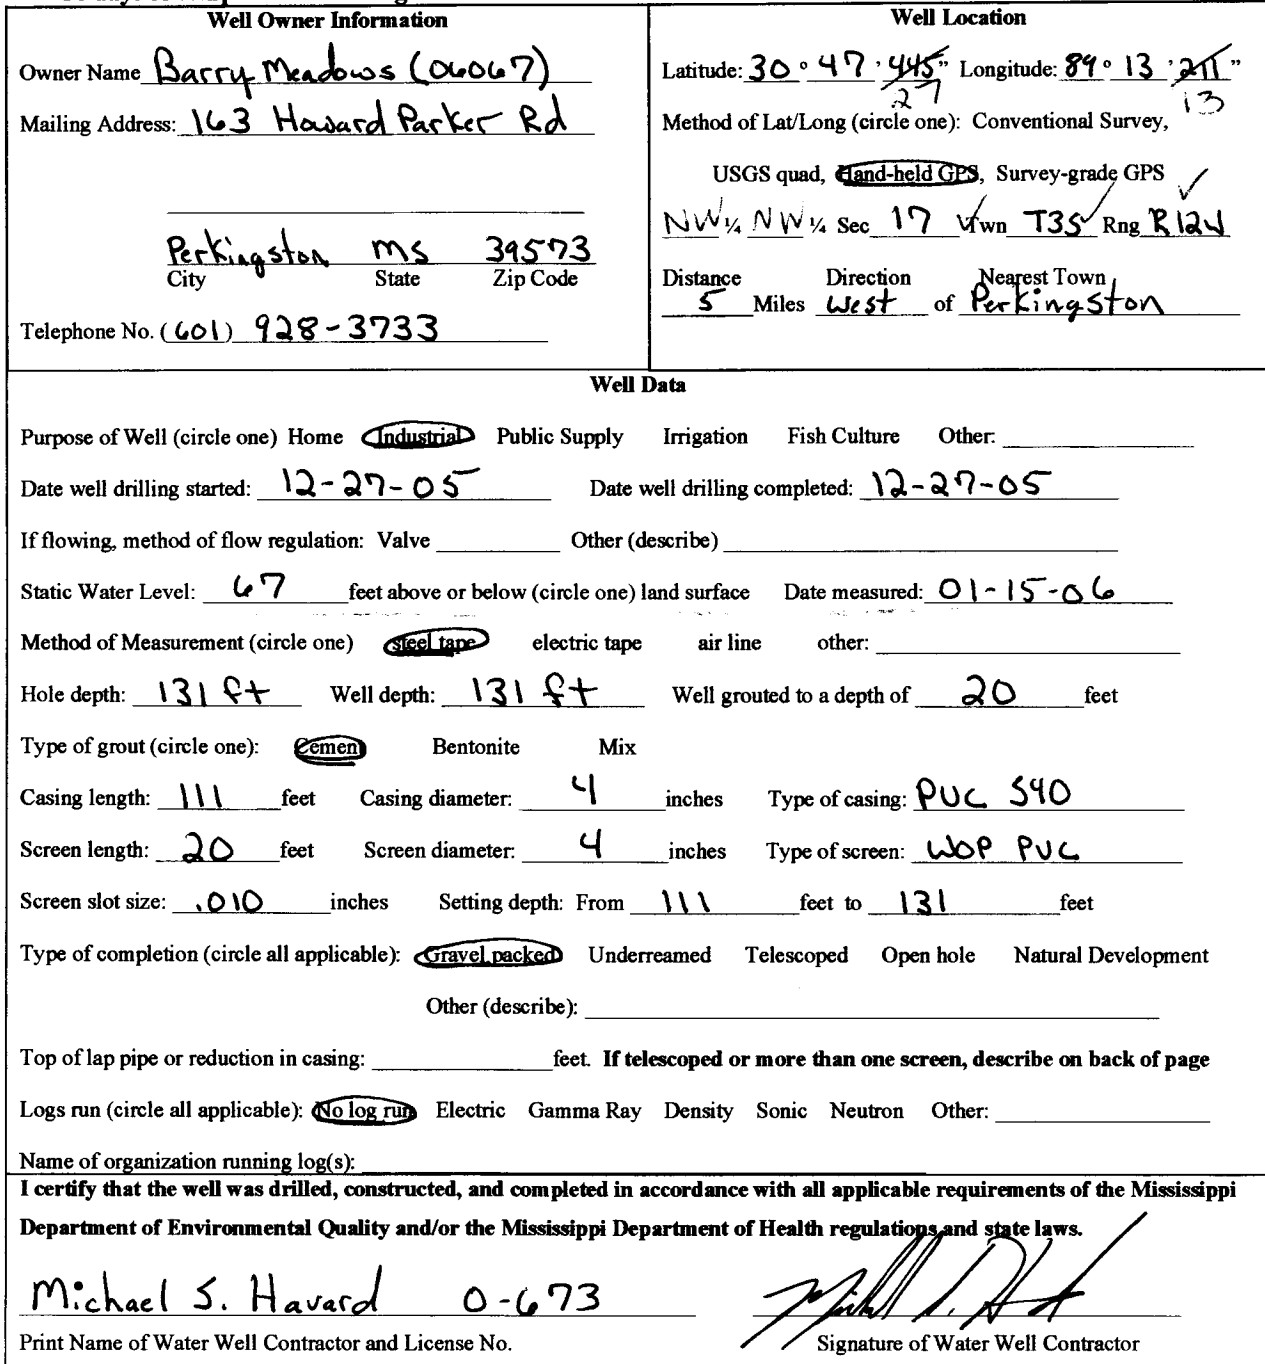 Well Owner Information
Owner Name Barry Meadows (06067)
Mailing Address: 163 Howard Parker Rd
Perkingston MS 39573
City State Zip Code
Telephone No. (601) 928-3733
Well Location
Latitude: 30 ° 47 ' 445 " Longitude: 89 ° 13 ' 211 "
27 13
Method of Lat/Long (circle one): Conventional Survey,
USGS quad, Hand-held GPS, Survey-grade GPS
NW ¼ NW ¼ Sec 17 Twn T3S Rng R12W
Distance Direction Nearest Town
5 Miles West of Perkingston
Well Data
Purpose of Well (circle one) Home Industrial Public Supply Irrigation Fish Culture Other:
Date well drilling started: 12-27-05 Date well drilling completed: 12-27-05
If flowing, method of flow regulation: Valve Other (describe)
Static Water Level: 67 feet above or below (circle one) land surface Date measured: 01-15-06
Method of Measurement (circle one) steel tape electric tape air line other:
Hole depth: 131 ft Well depth: 131 ft Well grouted to a depth of 20 feet
Type of grout (circle one): Cement Bentonite Mix
Casing length: 111 feet Casing diameter: 4 inches Type of casing: PVC S40
Screen length: 20 feet Screen diameter: 4 inches Type of screen: WOP PVC
Screen slot size: .010 inches Setting depth: From 111 feet to 131 feet
Type of completion (circle all applicable): Gravel packed Underreamed Telescoped Open hole Natural Development
Other (describe):
Top of lap pipe or reduction in casing: feet. If telescoped or more than one screen, describe on back of page
Logs run (circle all applicable): No log run Electric Gamma Ray Density Sonic Neutron Other:
Name of organization running log(s):
I certify that the well was drilled, constructed, and completed in accordance with all applicable requirements of the Mississippi
Department of Environmental Quality and/or the Mississippi Department of Health regulations and state laws.
Michael S. Havard 0-673
Print Name of Water Well Contractor and License No.
Signature of Water Well Contractor